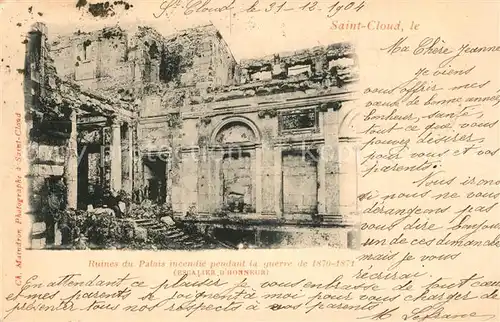 St Cloud le 31-12-1904
Saint-Cloud, le
Ma Chère Jeanne
Je viens
vous offrir mes
vœux de bonne année
bonheur, santé
tout ce que vous
pouvez désirer
ainsi que vos
parents.
Nous irons
si nous ne vous
dérangeons pas
vous dire bonjour
un de ces dimanches
mais je vous
récrirai.
Ruines du Palais incendié pendant la guerre de 1870-1871
(ESCALIER D'HONNEUR)
Ch. Maindron, Photographe à Saint-Cloud
En attendant ce plaisir je vous embrasse de tout cœur
et mes parents se joignent à moi pour vous charger de
présenter tous nos respects à vos parents.
M. Lefranc